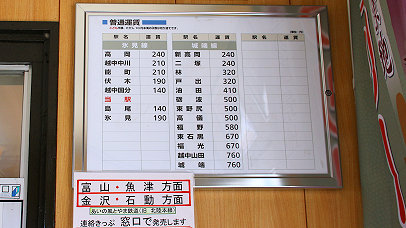 ■普通運賃
駅名 運賃 駅名 運賃 駅名 運賃
氷見線 城端線
高岡 240 新高岡 240
越中中川 210 二塚 240
能町 210 林 320
伏木 190 戸出 320
越中国分 140 油田 410
当駅 砺波 500
島尾 140 東野尻 500
氷見 190 高儀 500
福野 580
東石黒 670
福光 670
越中山田 760
城端 760
富山・魚津 方面
金沢・石動 方面
あいの風とやま鉄道(旧 北陸本線)
連絡きっぷ 窓口で発売します